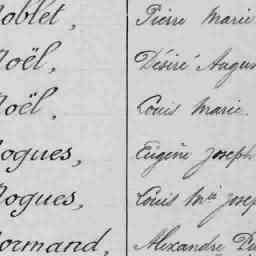 oblet, Pierre Marie
oël, Désiré Augus
oël, Louis Marie.
ogues, Eugène Joseph
ogues, Louis Mie Josep
ormand, Alexandre